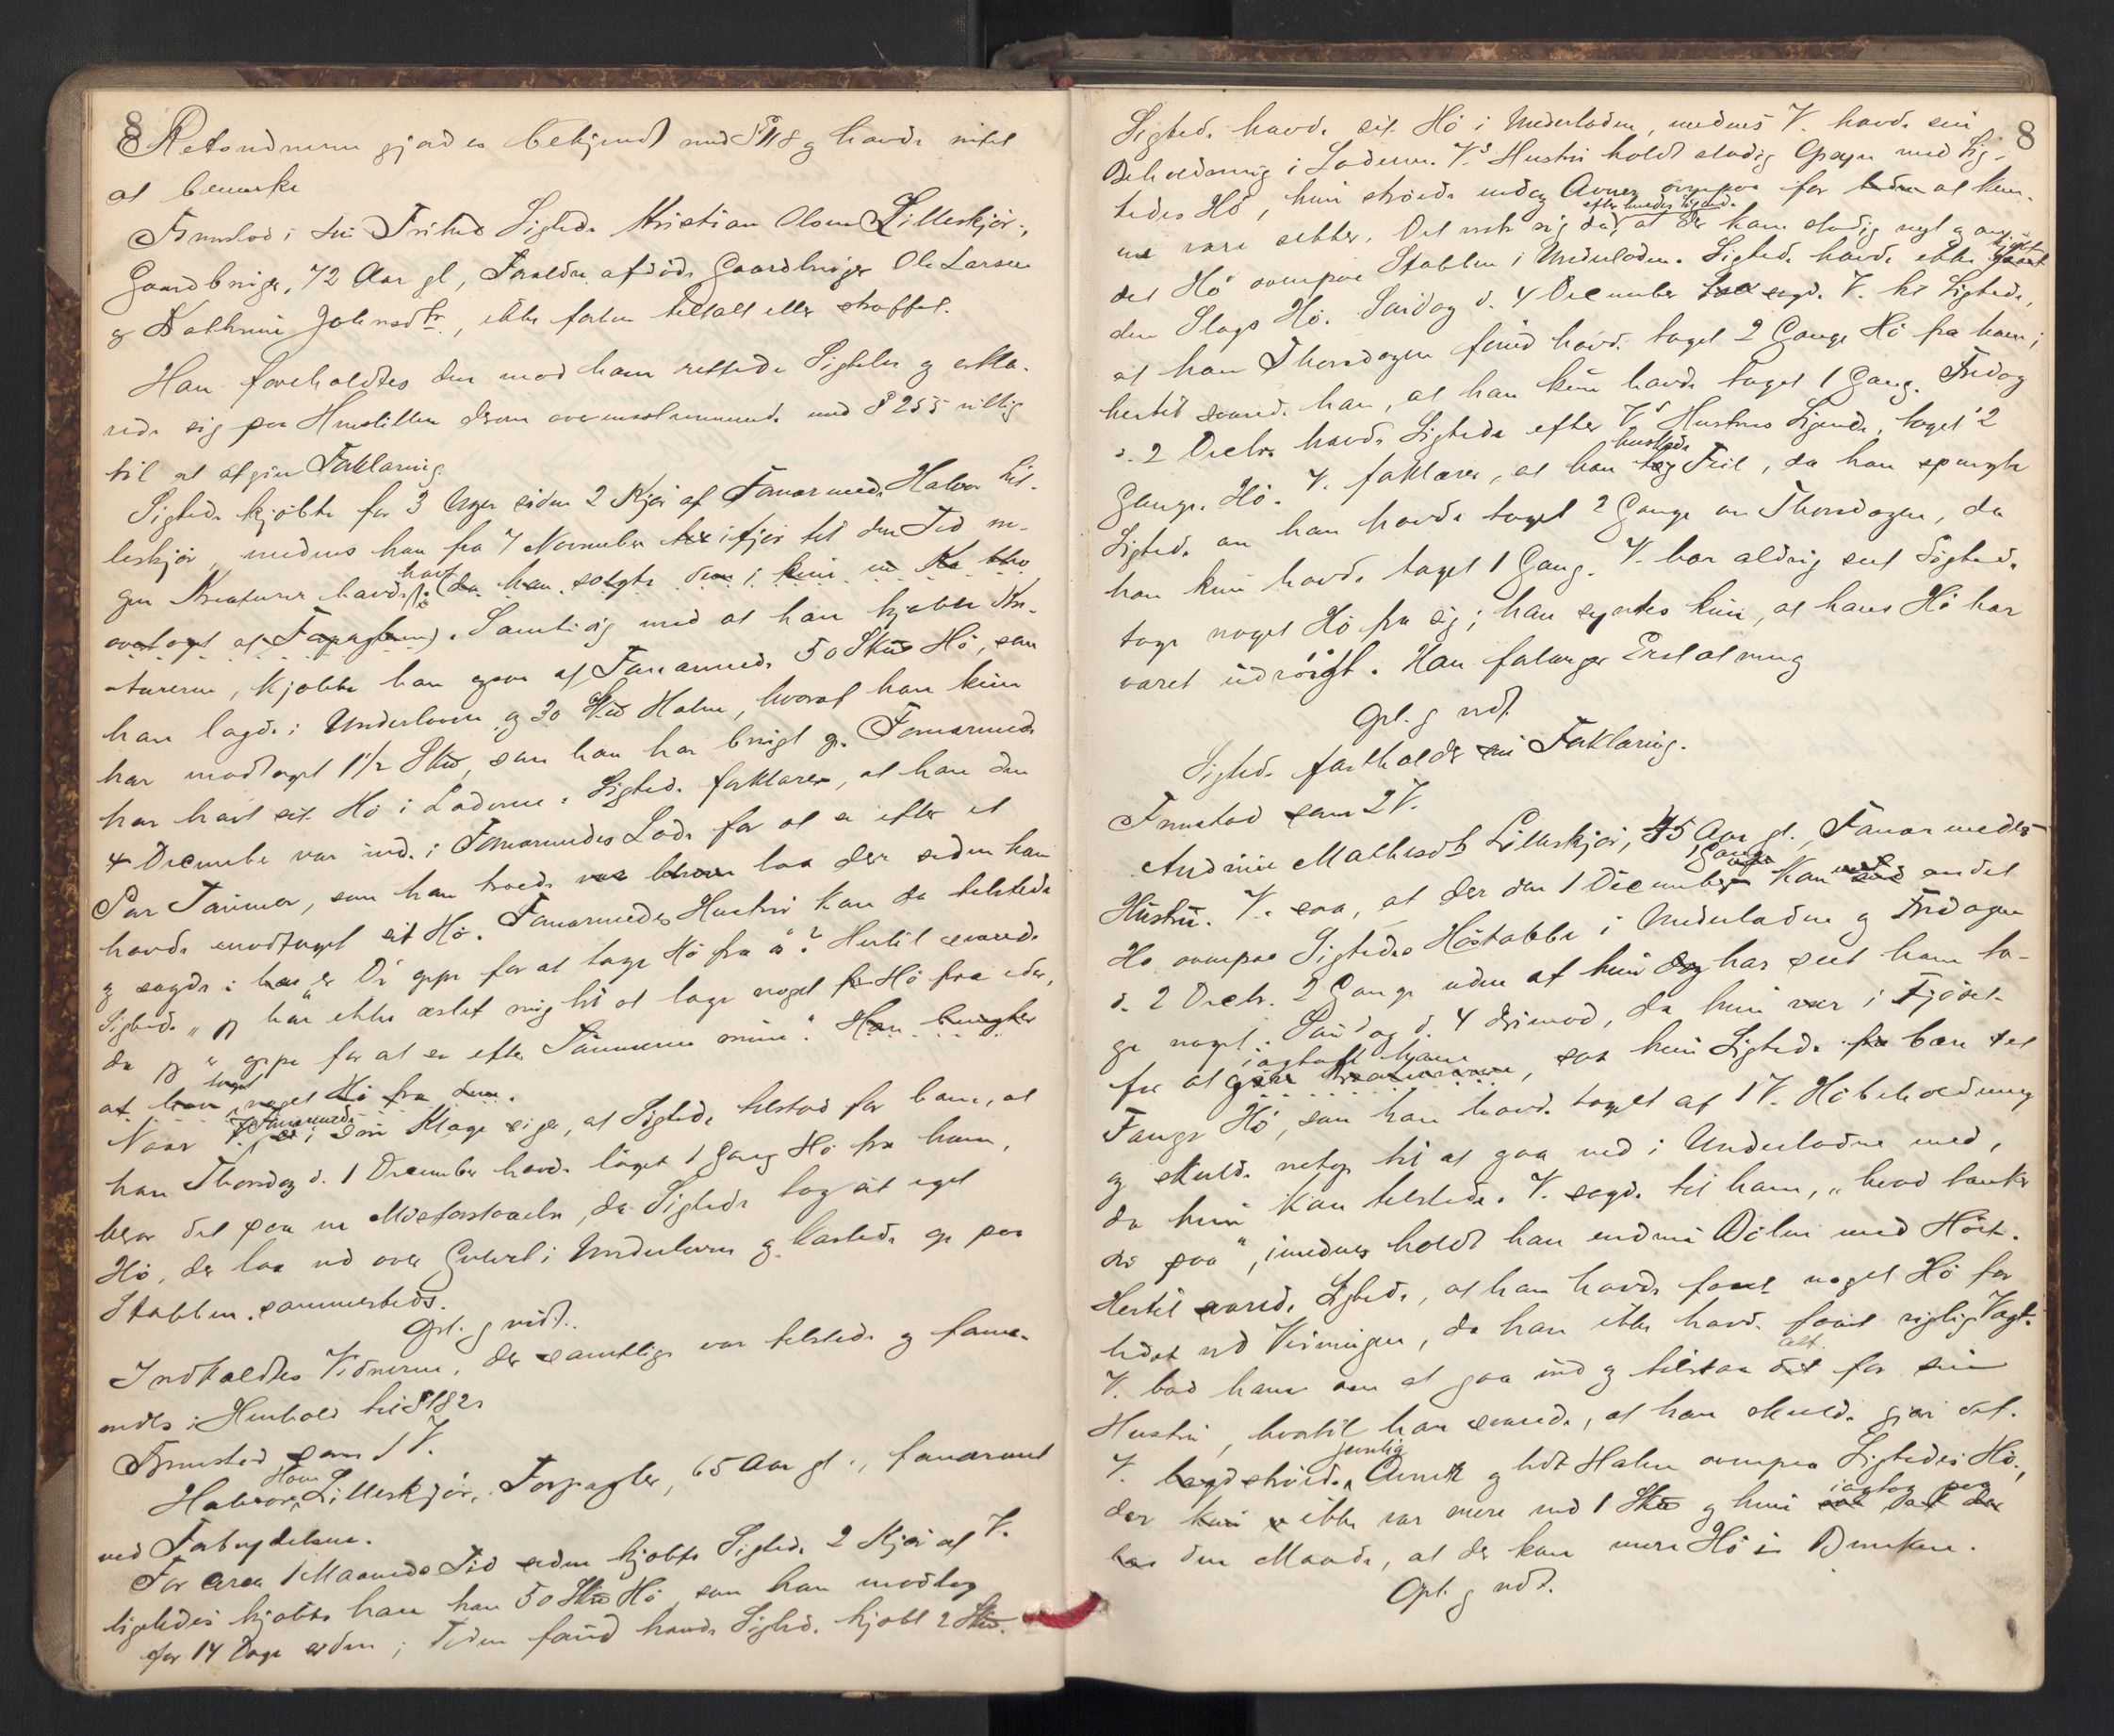 8
Retsvidnerne gjordes bekjendt med § 118 og havde intet
at bemerke
Fremstod i sin Frihed Sigtede Kristian Olsen Lilleskjør,
Gaardbruger, 72 Aar gl, Forældre afdøde Gaardbruger Ole Larsen
og Kathrine Johnsdtr., ikke forhen tiltalt eller straffet.
Han foreholdtes den mod ham rettede Sigtelse og erklæ-
rede sig paa Henstillen derom overensstemmende med § 255 villig
til at afgive Forklaring
Sigtede kjøbte for 3 Uger siden 2 Kjør af Fornærmede Halvor Lil-
leskjør, medens han fra 7 November i fjor til den Tid in-
gen Kreaturer havde havt (da han solgte dem i kun
overtaget af Forpagteren). Samtidig med at han kjøbte Kre-
aturerne, kjøbte han ogsaa af Fornærmede 50 Skũd Hø, som
han lagde i Underloven og 30 Skũd Halm, hvoraf han kun
har modtaget 1 1/2 Skũd, som han har brugt op. Fornærmede
har havt sit Hø i Laderne. Sigtede forklarer, at han den
4 December var inde i Fornærmedes Lade for at se efter et
Par Tømmer, som han troede laa der siden han
havde modtaget sit Hø. Fornærmedes Hustru kom da tilstede
og sagde: har er Di oppe for at tage Hø fra os? Hertil svarede
Sigtede "Jeg har ikke æslet mig til at tage noget Hø fra eder,
da jeg er oppe for at se efter Tømmerne mine." Han benegter
at han taget noget Hø fra dem.
Naar Fornærmede i sin Klage siger, at Sigtede tilstod for ham, at
han Thorsdag d. 1 December havde taget 1 Gang Hø fra ham,
beror det paa en Misforstaaelse, da Sigtede tog sit eget
Hø, der laa ud over Gulvet i Underloven og kastede op paa
Stabben sammesteds.
Opl. og vedt.
Indkaldtes Vidnerne, der samtlige var tilstede og forma-
nedes i Henhold til § 182
Fremstod som 1 V.
Halvor Lilleskjør, Forpagter, 65 Aar gl., fornærmet
ved Forbrydelsen.
For circa 1 Maaneds Tid siden kjøbte Sigtede 2 Kjør af V.
ligeledes kjøbte han 50 Skũd Hø, som han modtog
for 14 Dage siden; Tiden forud havde Sigtede kjøbt 2 Skũd.
8
Sigtede havde sit Hø i Underladen, medens V. havde sin
Beholdning i Laderne. V.s Hustru holdt stadig Opsyn med Sig-
tedes Hø, hun strøede endog Avner ovenpaa for at kun-
ne være sikker. Det viste sig da, efter hendes Sigende at der kom stadig nyt og an-
det Hø ovenpaa Stabben i Underladen. Sigtede havde ikke kjøbt
den Slags Hø. Søndag d. 4 December sagde V. til Sigtede,
at han Thorsdagen forud havde taget 2 Gange Hø fra ham;
hertil svarede han, at han kun havde taget 1 Gang. Fredag
d. 2 Decbr havde Sigtede efter V.s Hustrus Sigende, taget 2
Gange Hø. V. forklarer, at han huskede Feil, da han spurgte
Sigtede om han havde taget 2 Gange om Thorsdagen, da
han kun havde taget 1 Gang. V. har aldrig seet Sigtede
tage noget Hø fra sig; han syntes kun, at hans Hø har
været udrøigt. Han forlanger Erstatning
Opl. og vedt.
Sigtede fastholder sin Forklaring.
Fremstod som 2 V.
Andrine Mathisdt. Lilleskjør, 45 Aar gl., Fornærmedes
Hustru. V. saa, at der den 1 December 1 Gang kom andet
Hø ovenpaa Sigtedes Høstabbe i Underladen og Fredagen
d. 2 Decbr. 2 Gange uden at hun har seet ham ta-
ge noget. Søndag d. 4 derimod, da hun var i Fjøset
for at iagttage ham, saa hun Sigtede bære et
Fange Hø, som han havde taget af 1 V. Høbeholdning
og skulde netop til at gaa ned i Underladen med,
da hun kom tilstede. V. sagde til ham, "hvad tænker
di paa", imedens holdt han endnu Bølen med Høet.
Hertil svarede Sigtede, at han havde faaet noget Hø for
lidet ved Veiningen, da han ikke havde faaet rigtig Vægt.
V. bad ham om at gaa ind og tilstaa alt for sin
Hustru, hvortil han svarede, at han skulde gjøre det.
V. strøede jevnlig Avner og lidt Halm ovenpaa Sigtedes Hø,
der ikke var mere end 1 Skũd og hun iagtog paa
den Maade, at der kom mere Hø i Dunken.
Opl. og vedt.